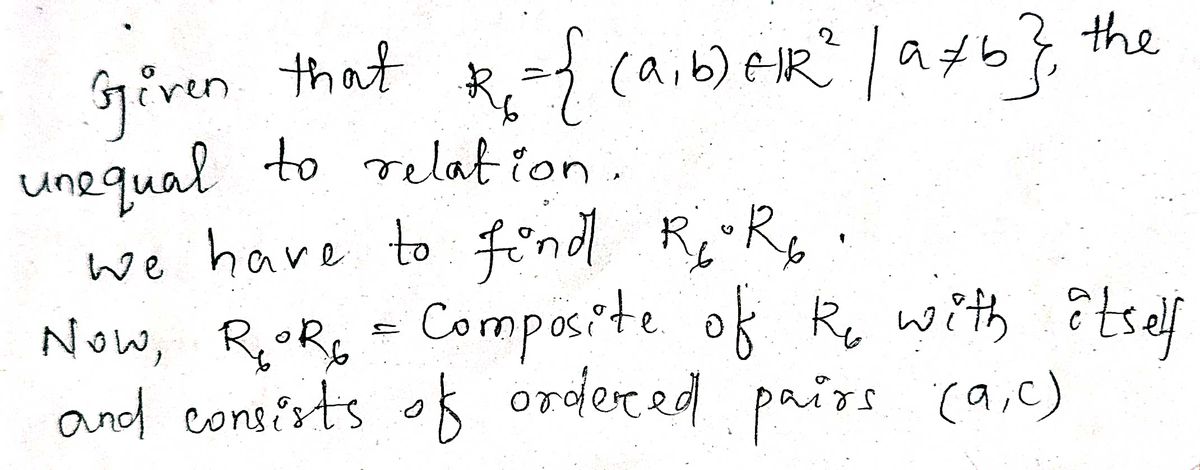 Given that R₆ = { (a,b) ∈ ℝ² | a ≠ b }, the
unequal to relation.
we have to find R₆∘R₆.
Now, R₆∘R₆ = Composite of R₆ with itself
and consists of ordered pairs (a,c)